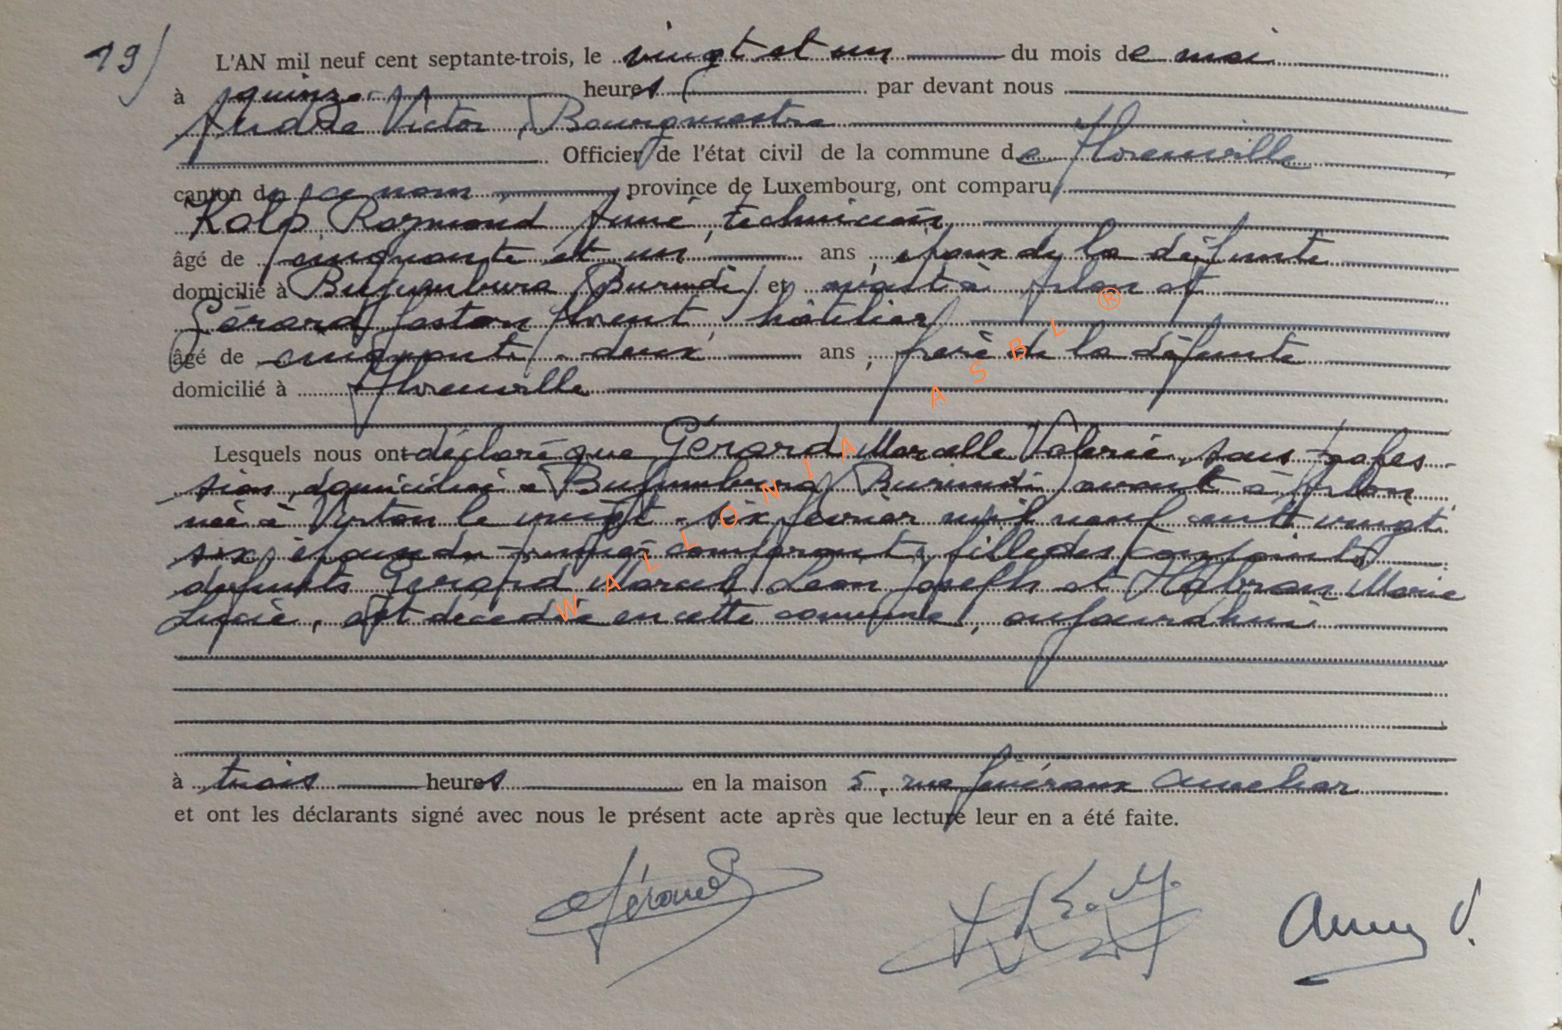 19)
L'AN mil neuf cent septante-trois, le vingt et un du mois de mai
à quinze heures par devant nous
Victor, Bourgmestre
Officier de l'état civil de la commune de Florenville
canton de ce nom province de Luxembourg, ont comparu
Kolp Raymond Aimé, technicien
âgé de cinquante et un ans, époux de la défunte
domicilié à Bujumbura (Burundi) et avant à Arlon et
Gérard Gaston Florent, hôtelier
âgé de cinquante-deux ans, frère de la défunte
domicilié à Florenville
Lesquels nous ont déclaré que Gérard Marcelle Valérie, sans profes
sion, domiciliée à Bujumbura (Burundi) avant à Arlon
née à Virton le vingt-six février mil neuf cent vingt
six, épouse du premier comparant, fille des conjoints
défunts Gérard Marcel Léon Joseph et Habran Marie
Lucie, est décédée en cette commune, aujourd'hui
à trois heures en la maison 5, rue Généraux Cuvelier
et ont les déclarants signé avec nous le présent acte après que lecture leur en a été faite.
Gérard
WALLONIA ASBL ®